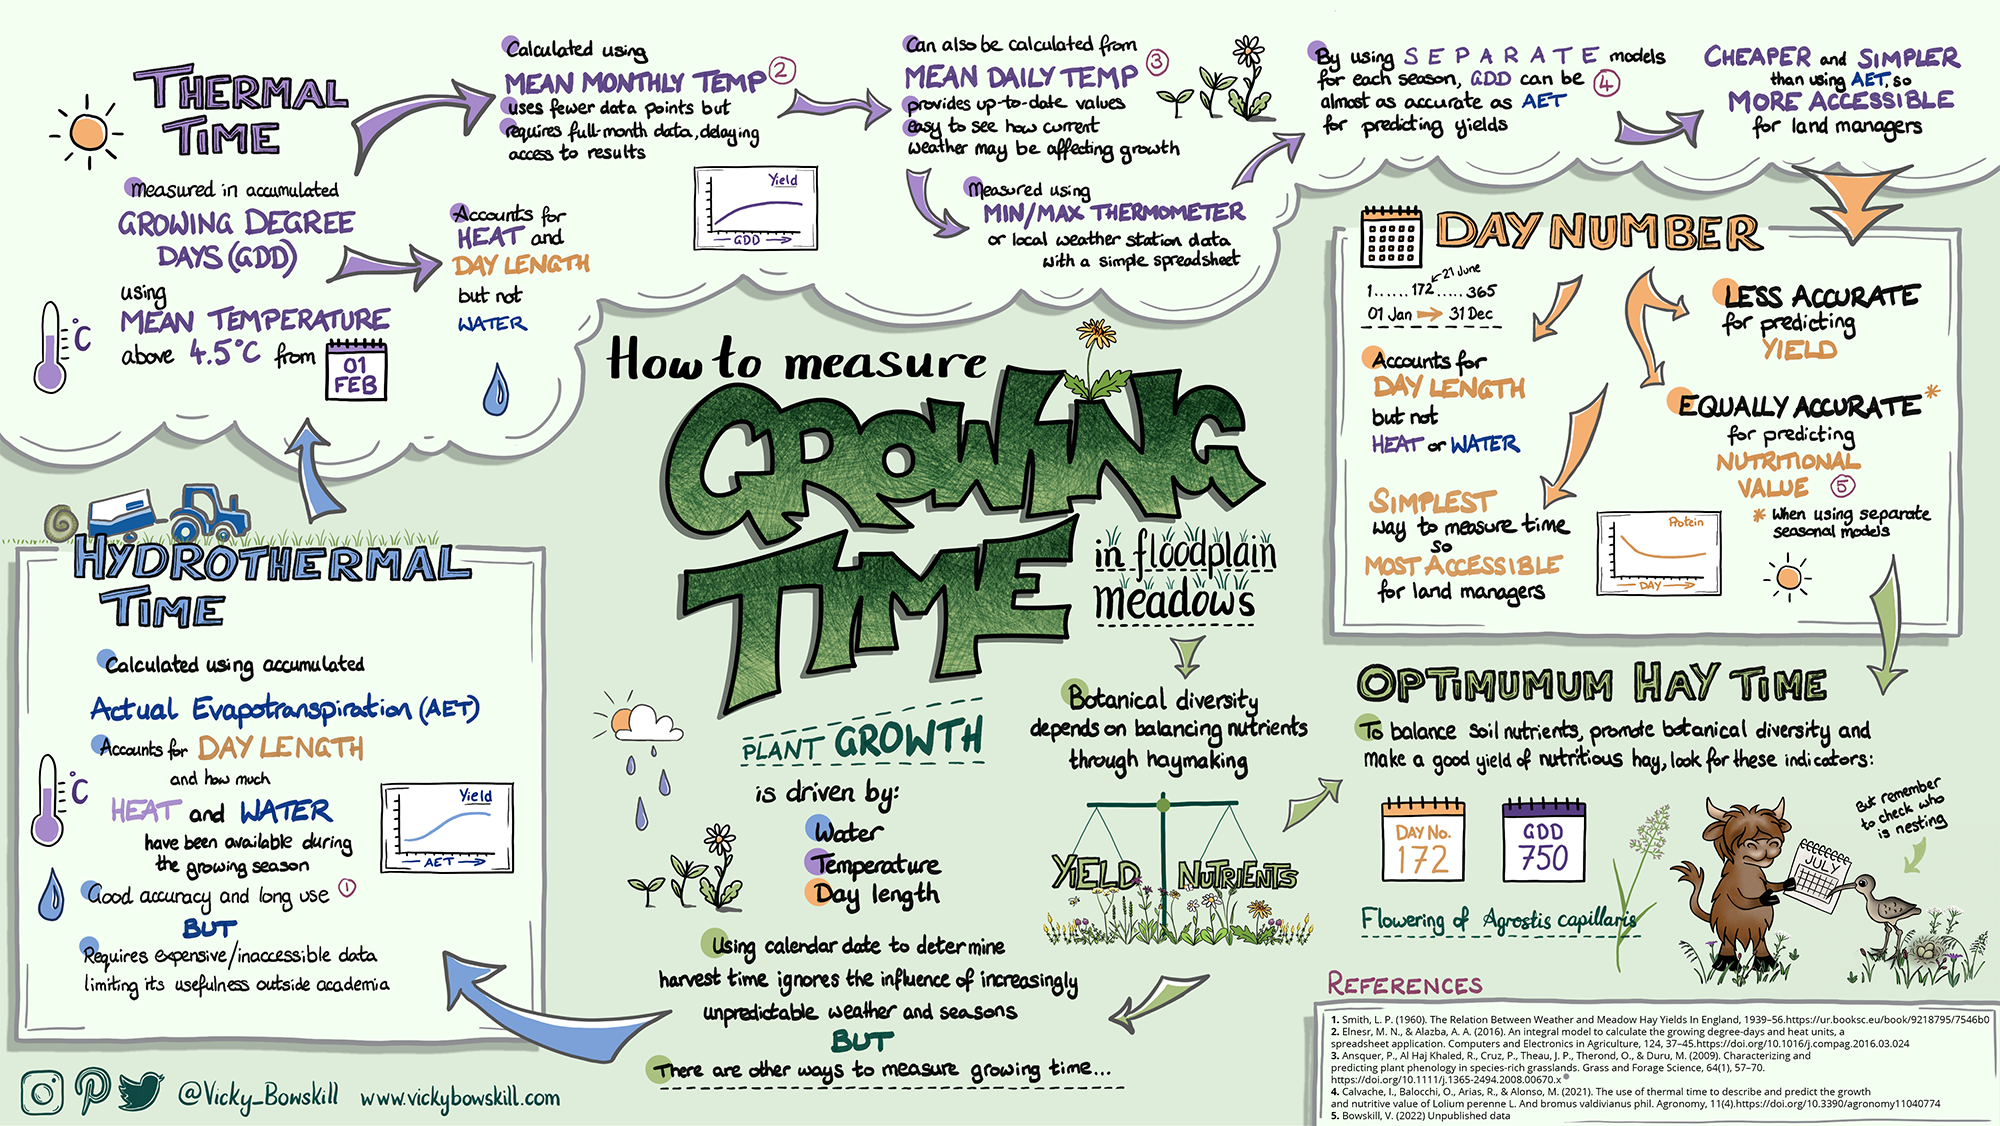 How to measure
GROWING
TIME
in floodplain
meadows
PLANT GROWTH
is driven by:
Water
Temperature
Day length
Using calendar date to determine
harvest time ignores the influence of increasingly
unpredictable weather and seasons
BUT
There are other ways to measure growing time...
Botanical diversity
depends on balancing nutrients
through haymaking
YIELD NUTRIENTS
HYDROTHERMAL
TIME
Calculated using accumulated
Actual Evapotranspiration (AET)
Accounts for DAY LENGTH
and how much
HEAT and WATER
have been available during
the growing season
Good accuracy and long use 1
BUT
Requires expensive/inaccessible data
limiting its usefulness outside academia
°C
Yield
AET
THERMAL
TIME
Measured in accumulated
GROWING DEGREE
DAYS (GDD)
using
MEAN TEMPERATURE
above 4.5°C from
01
FEB
°C
Accounts for
HEAT and
DAY LENGTH
but not
WATER
Calculated using
MEAN MONTHLY TEMP 2
uses fewer data points but
requires full-month data, delaying
access to results
Yield
GDD
Can also be calculated from
MEAN DAILY TEMP 3
provides up-to-date values
easy to see how current
weather may be affecting growth
Measured using
MIN/MAX THERMOMETER
or local weather station data
with a simple spreadsheet
By using SEPARATE models
for each season, GDD can be 4
almost as accurate as AET
for predicting yields
CHEAPER and SIMPLER
than using AET, so
MORE ACCESSIBLE
for land managers
DAY NUMBER
21 June
1......172.....365
01 Jan 31 Dec
Accounts for
DAY LENGTH
but not
HEAT or WATER
SIMPLEST
way to measure time
so
MOST ACCESSIBLE
for land managers
LESS ACCURATE
for predicting
YIELD
EQUALLY ACCURATE*
for predicting
NUTRITIONAL
VALUE 5
* When using separate
seasonal models
Protein
DAY
OPTIMUMUM HAY TIME
To balance soil nutrients, promote botanical diversity and
make a good yield of nutritious hay, look for these indicators:
DAY No.
172
GDD
750
Flowering of Agrostis capillaris
JULY
But remember
to check who
is nesting
REFERENCES
1. Smith, L. P. (1960). The Relation Between Weather and Meadow Hay Yields In England, 1939–56.https://ur.booksc.eu/book/9218795/7546b0
2. Elnesr, M. N., & Alazba, A. A. (2016). An integral model to calculate the growing degree-days and heat units, a
spreadsheet application. Computers and Electronics in Agriculture, 124, 37–45.https://doi.org/10.1016/j.compag.2016.03.024
3. Ansquer, P., Al Haj Khaled, R., Cruz, P., Theau, J. P., Therond, O., & Duru, M. (2009). Characterizing and
predicting plant phenology in species-rich grasslands. Grass and Forage Science, 64(1), 57–70.
https://doi.org/10.1111/j.1365-2494.2008.00670.x
4. Calvache, I., Balocchi, O., Arias, R., & Alonso, M. (2021). The use of thermal time to describe and predict the growth
and nutritive value of Lolium perenne L. And bromus valdivianus phil. Agronomy, 11(4).https://doi.org/10.3390/agronomy11040774
5. Bowskill, V. (2022) Unpublished data
@Vicky_Bowskill www.vickybowskill.com